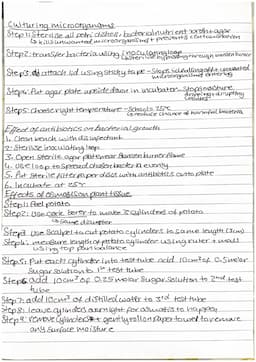 Culturing microorganisms
Step 1: Sterilise all petri dishes, bacterial nutrient broth + agar
↳ kills unwanted microorganisms + prevents contamination
Step 2: transfer bacteria using inoculating loop
↳ sterilise by passing through bunsen burner
Step 3: attach lid using sticky tape - Stops
microorganisms entering
Step 4: Put agar plate upside down in incubator - Stop moisture
dripping + disrupting
Step 5: choose right temperature - Schools 25°C
↳ reduce chance of harmful bacteria
Effect of antibiotics on bacterial growth
1. Clean bench with disinfectant
2. Sterilise inoculating loop
3. Open sterile agar plate near Bunsen burner flame
4. Use loop to spread chosen bacteria evenly
5. Put sterile filter paper discs with antibiotics onto plate
6. Incubate at 25°C
Effects of osmosis on plant tissue
Step 1: Peel potato
Step 2: Use cork borer to make 3 cylinders of potato
↳ same diameter
Step 3: Use scalpel to cut potato cylinders to same length (3cm)
Step 4: measure length of potato cylinder using ruler + mass
using top pan balance
Step 5: Put each cylinder into test tube add 10cm³ of 0.5 molar
Sugar solution to 1st test tube
Step 6: add 10cm³ of 0.25 molar sugar solution to 2nd test
tube
Step 7: add 10cm³ of distilled water to 3rd test tube
Step 8: leave cylinders overnight for osmosis to happen
Step 9: remove cylinders + gently roll on paper towel to remove
any surface moisture